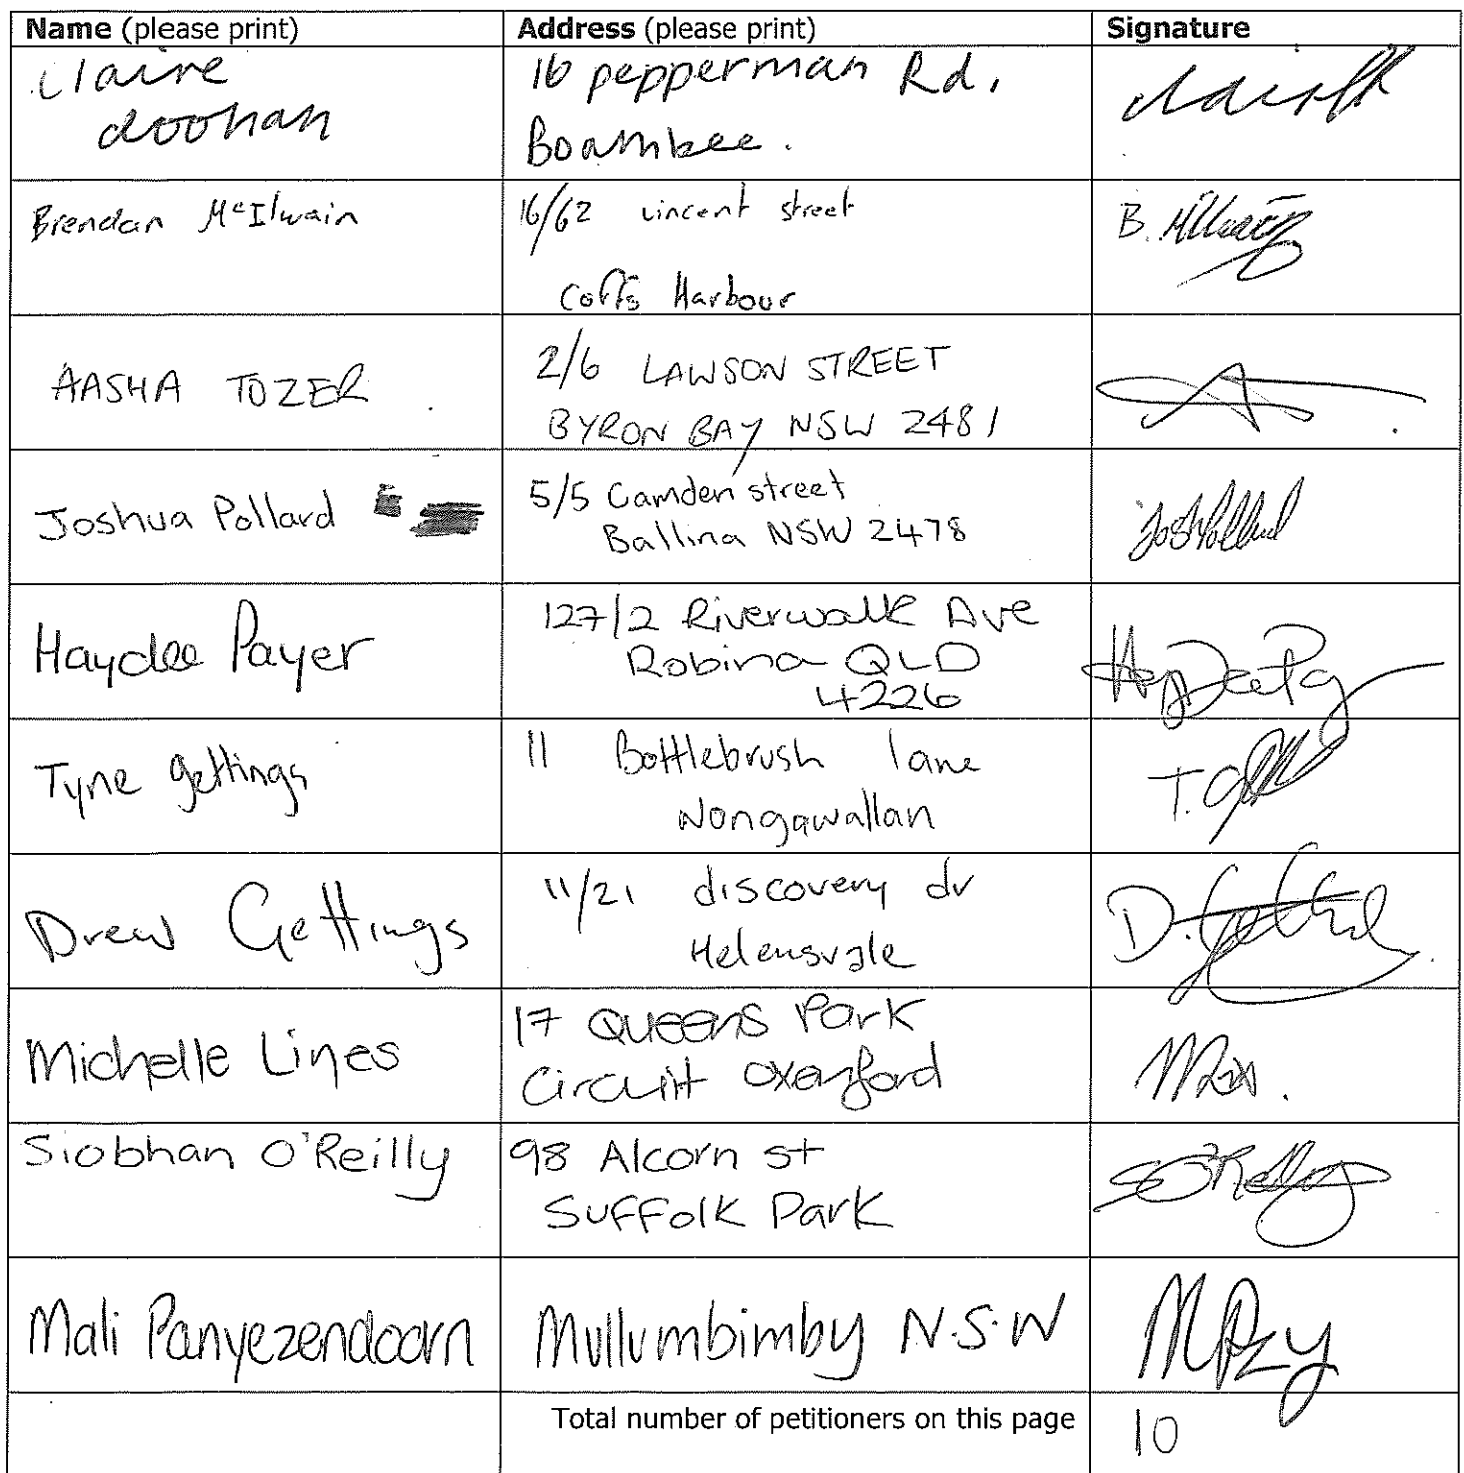 Name (please print) Address (please print) Signature
Claire
doohan
16 pepperman Rd,
Boambee.
Brendan McIlwain
16/62 vincent street
Coffs Harbour
B. McIlwain
AASHA TOZER
2/6 LAWSON STREET
BYRON BAY NSW 2481
Joshua Pollard
5/5 Camden street
Ballina NSW 2478
Josh Pollard
Haydee Payer
127/2 Riverwalk Ave
Robina QLD
4226
Tyne gettings
11 Bottlebrush lane
Nongawallan
T. G
Drew Gettings
11/21 discovery dr
Helensvale
D.
Michelle Lines
17 Queens Park
Circuit Oxenford
Siobhan O'Reilly
98 Alcorn st
Suffolk Park
SO'Reilly
Mali Panyezendoorn
Mullumbimby N.S.W
Total number of petitioners on this page 10